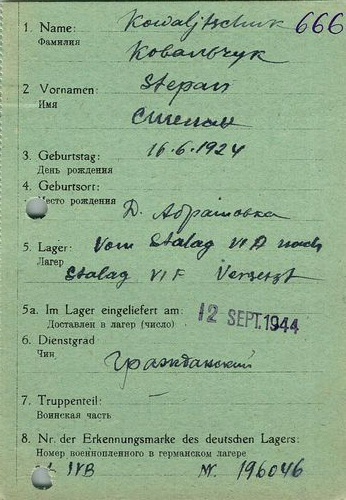 1. Name: Kowaljtschuk 666
Фамилия
Ковальчук
2 Vornamen: Stepan
Имя
Степан
3. Geburtstag: 16.6.1924
День рождения
4. Geburtsort:
Место рождения
Д. Абрамовка
5. Lager: Vom Stalag VI D nach
Лагер
Stalag VI F Versetzt
5a. Im Lager eingeliefert am: 12 SEPT. 1944
Доставлен в лагер (число)
6. Dienstgrad
Чин
Гражданский
7. Truppenteil: —
Воинская часть
8. Nr. der Erkennungsmarke des deutschen Lagers:
Номер военнопленного в германском лагере
IVB Nr. 196046